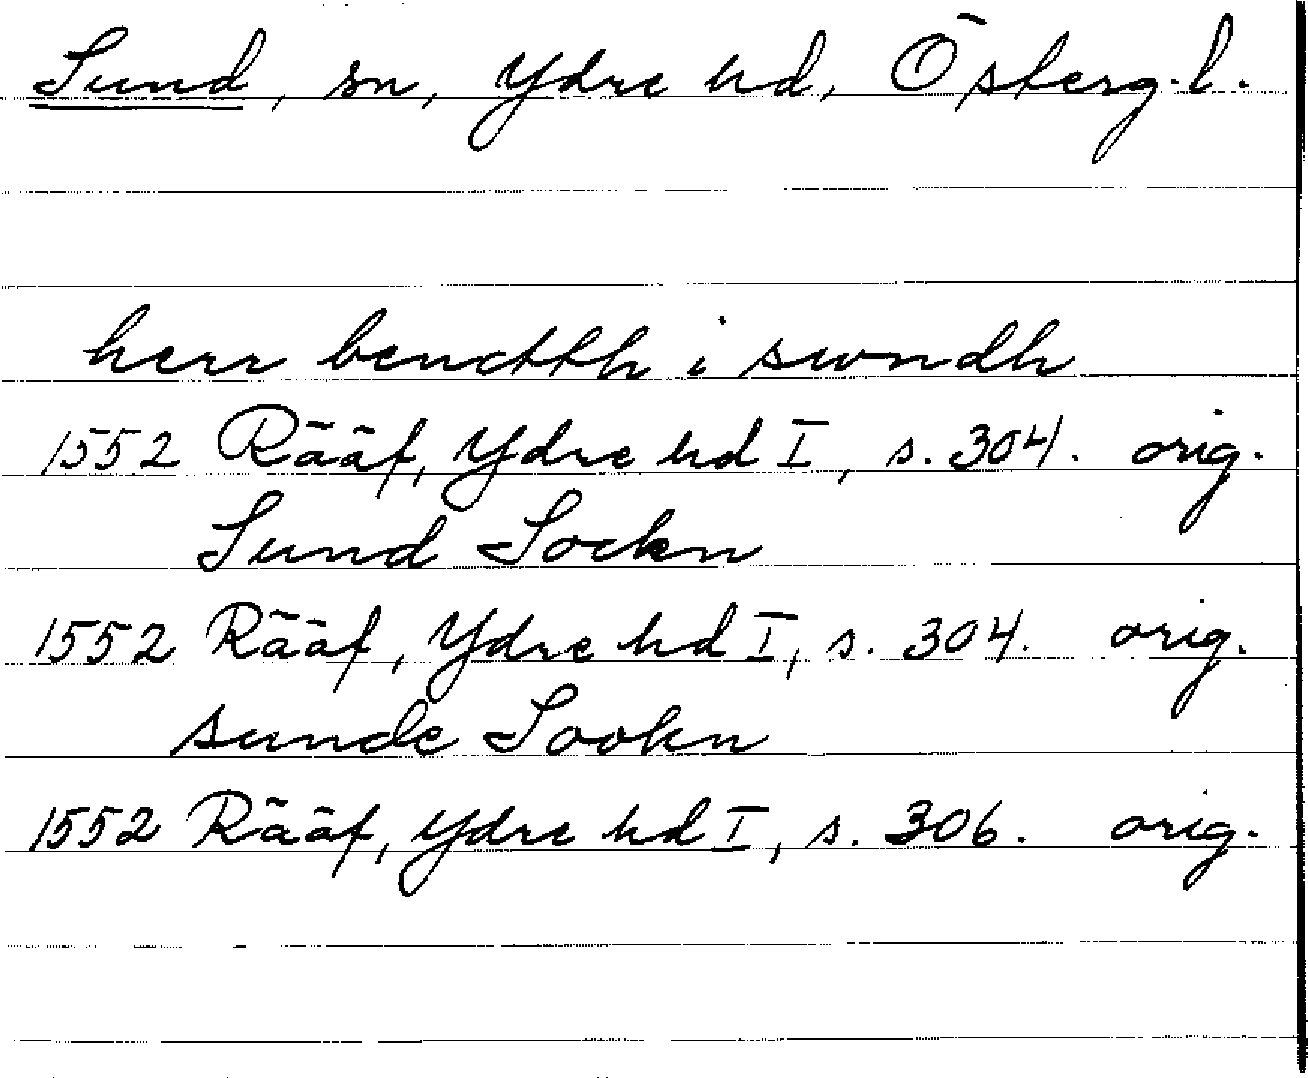 Sund, sn, Ydre hd, Österg. l.
herr benctth i swndh
1552 Rääf, Ydre hd I, s. 304. orig.
Sund Sockn
1552 Rääf, Ydre hd I, s. 304. orig.
sunde Sookn
1552 Rääf, Ydre hd I, s. 306. orig.